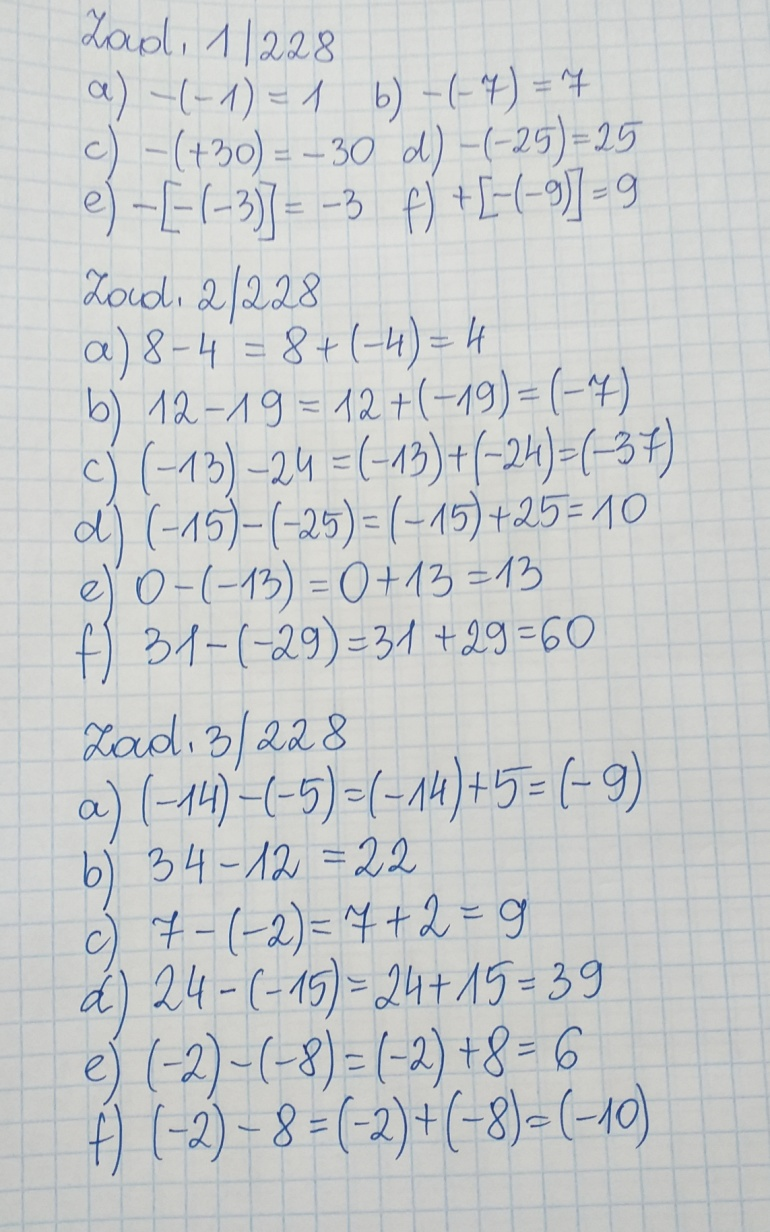 Zad. 1/228
a) -(-1) = 1 b) -(-7) = 7
c) -(+30) = -30 d) -(-25)=25
e) -[-(-3)] = -3 f) +[-(-9)] = 9
Zad. 2/228
a) 8-4 = 8+(-4) = 4
b) 12-19 = 12+(-19) = (-7)
c) (-13)-24 = (-13)+(-24)=(-37)
d) (-15)-(-25)=(-15)+25=10
e) 0-(-13) = 0+13 = 13
f) 31-(-29)=31+29=60
Zad. 3/228
a) (-14)-(-5)=(-14)+5=(-9)
b) 34-12 = 22
c) 7-(-2)= 7+2 = 9
d) 24-(-15)= 24+15 = 39
e) (-2)-(-8)=(-2)+8= 6
f) (-2)-8=(-2)+(-8)=(-10)